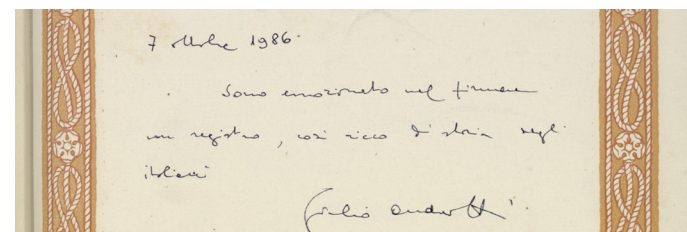 7 ottobre 1986.
Sono emozionato nel firmare
un registro, così ricco di storia negli
italiani
Giulio Andreotti.